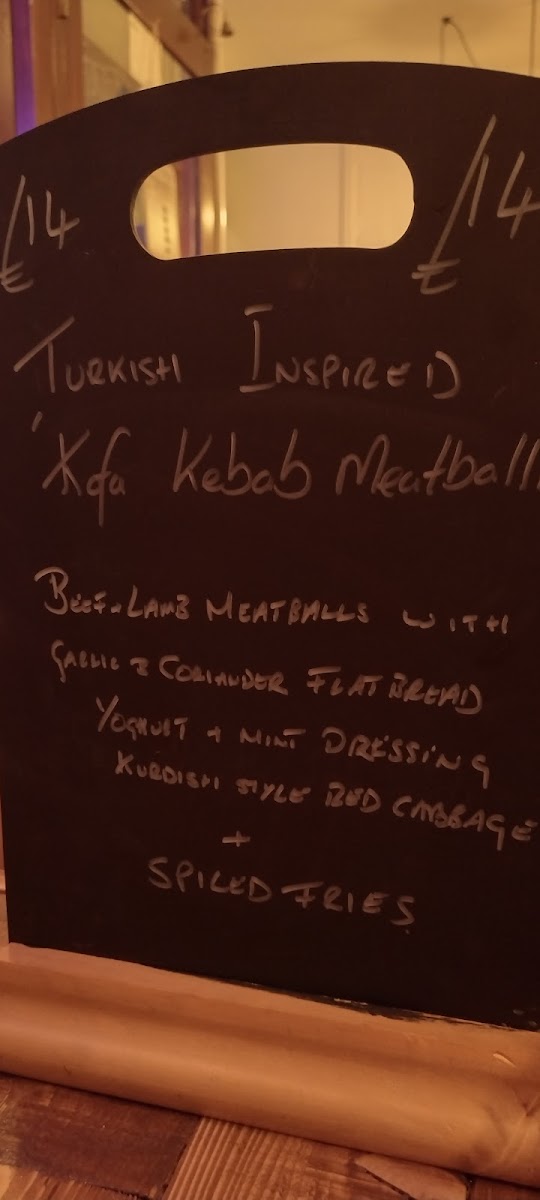 £14 £14
TURKISH INSPIRED
'Kofa Kebab Meatballs
BEEF & LAMB MEATBALLS WITH
GARLIC & CORIANDER FLATBREAD
YOGHURT + MINT DRESSING
KURDISH STYLE RED CABBAGE
+
SPICED FRIES